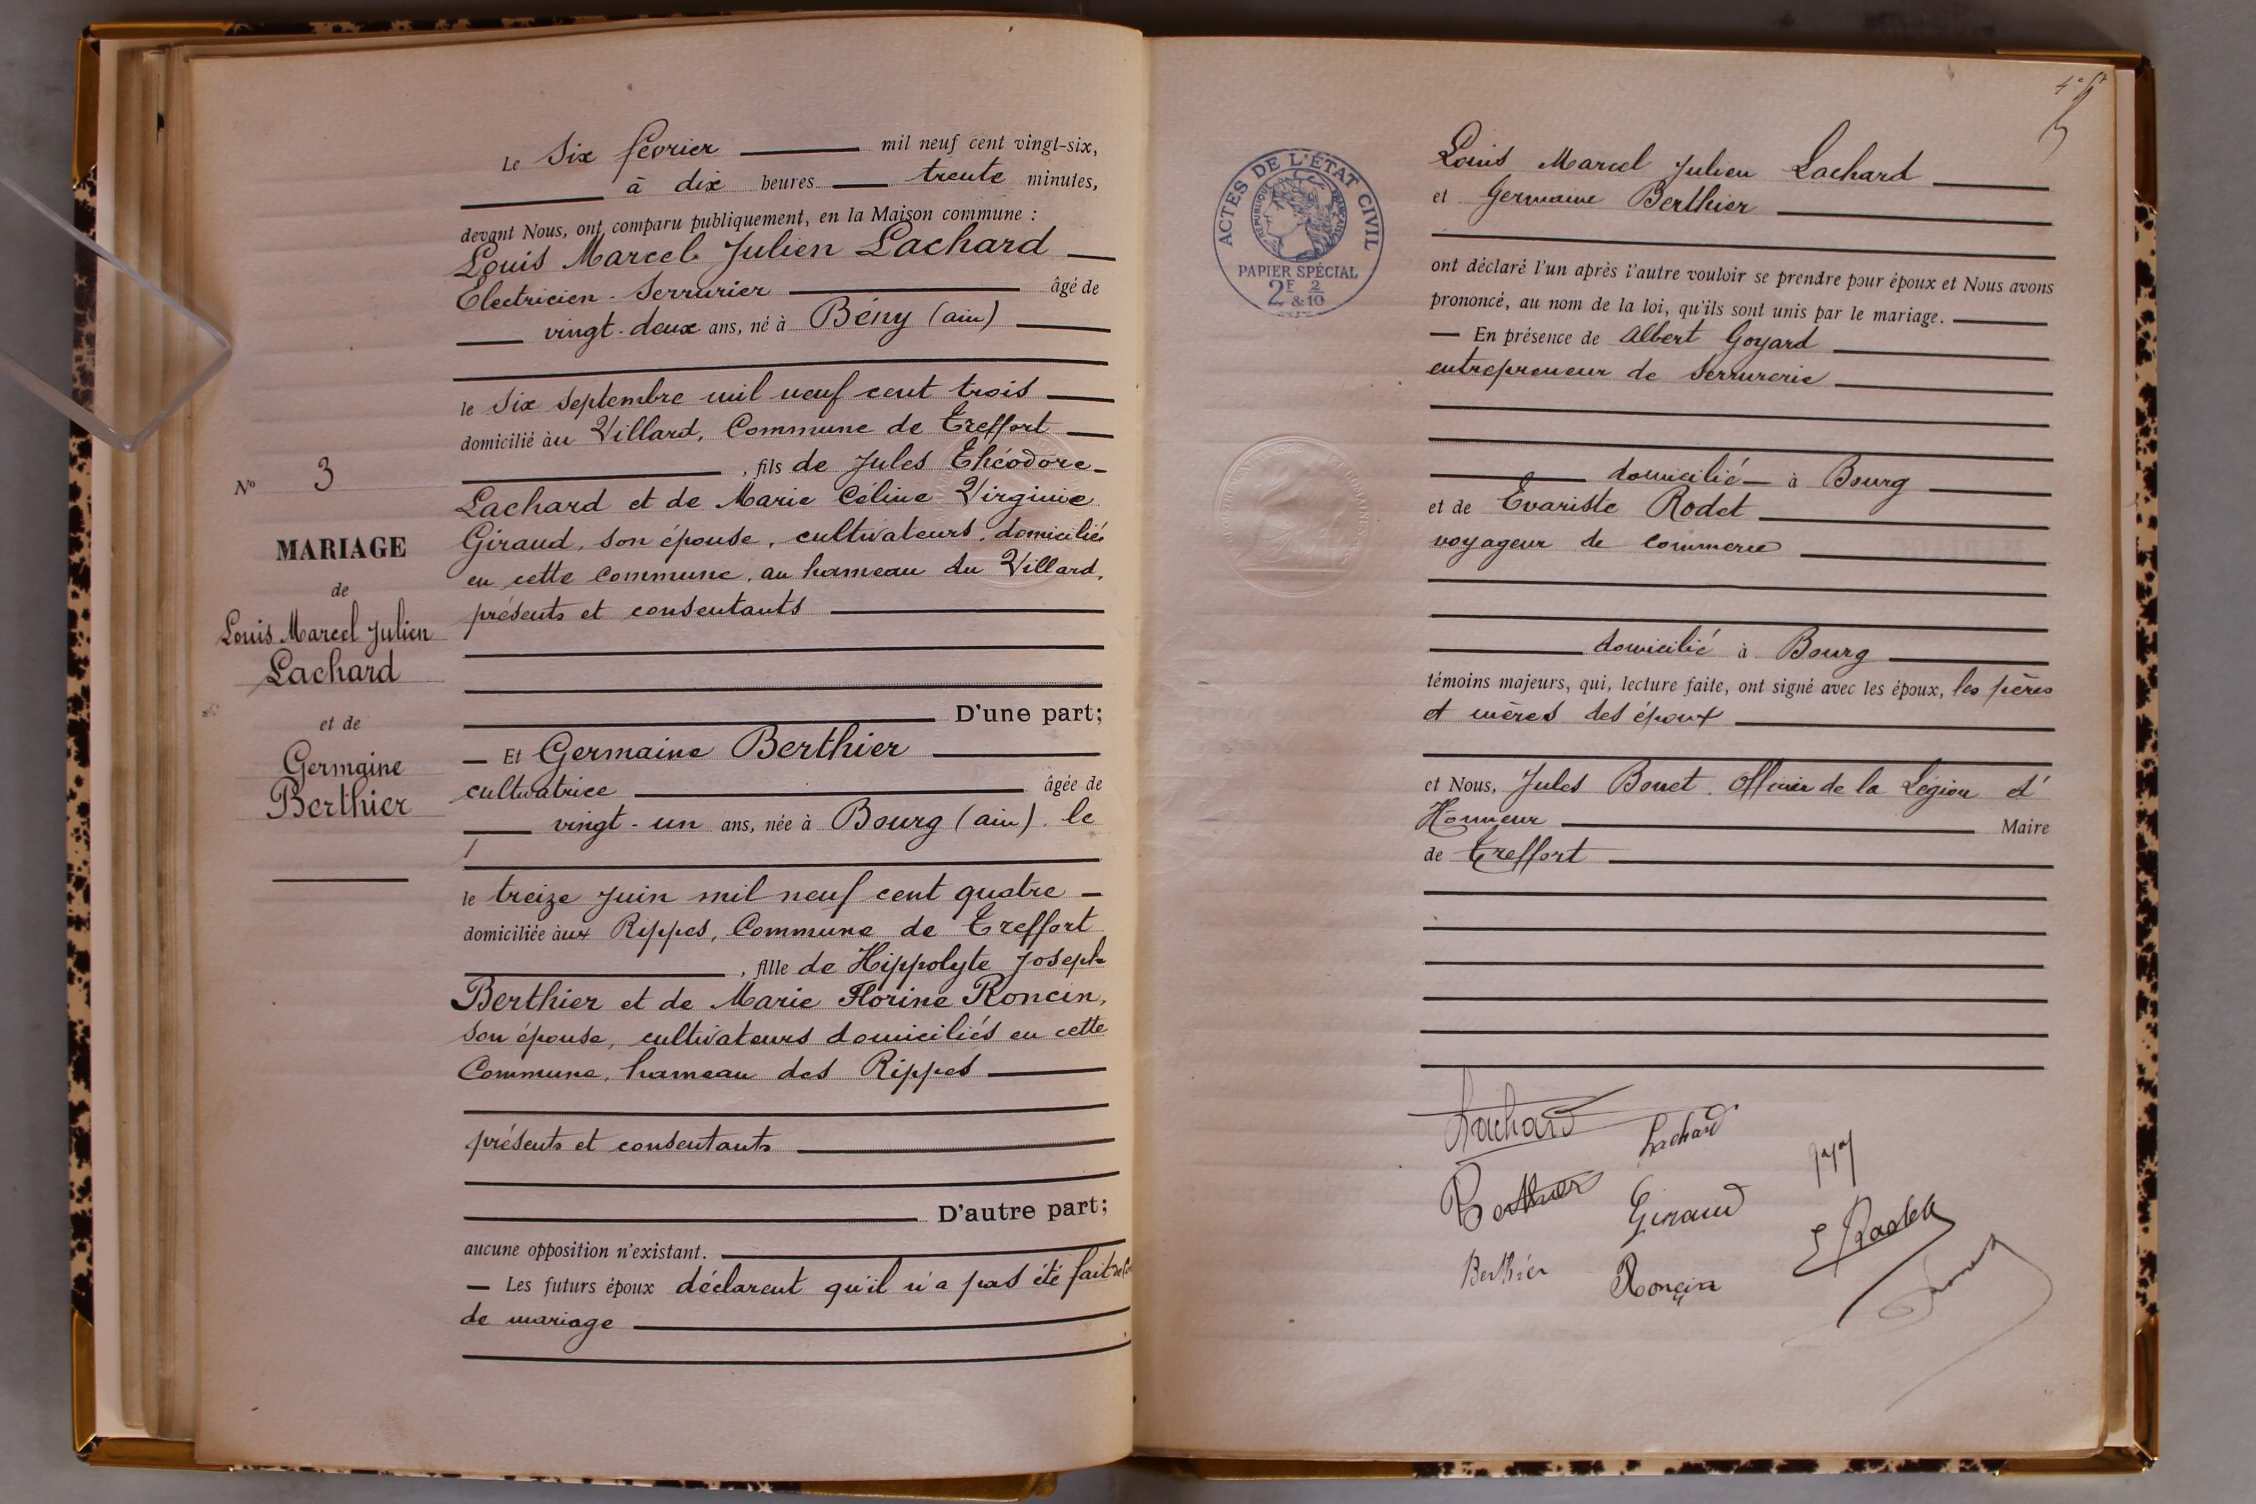 Le Six février mil neuf cent vingt-six,
à dix heures trente minutes,
devant Nous, ont comparu publiquement, en la Maison commune :
Louis Marcel Julien Lachard
Electricien - Serrurier âgé de
vingt-deux ans, né à Bény (ain)
le Six Septembre mil neuf cent trois
domicilié àu Villard, Commune de Treffort
, fils de Jules Théodore
Lachard et de Marie Céline Virginie
Giraud, son épouse, cultivateurs, domiciliés
en cette Commune, au hameau du Villard,
présents et consentants
D'une part;
Nº 3
MARIAGE
de
Louis Marcel Julien
Lachard
et de
Germaine
Berthier
Et Germaine Berthier
cultivatrice âgée de
vingt-un ans, née à Bourg (ain). le
le treize Juin mil neuf cent quatre
domiciliée àux Rippes, Commune de Treffort
, fille de Hippolyte Joseph
Berthier et de Marie Florine Roncin,
son épouse, cultivateurs domiciliés en cette
Commune, hameau des Rippes
présents et consentants
D'autre part;
aucune opposition n'existant.
Les futurs époux déclarent qu'il n'a pas été fait
de mariage
ACTES DE L'ÉTAT CIVIL
RÉPUBLIQUE FRANÇAISE
PAPIER SPÉCIAL
2F 2
&10
Louis Marcel Julien Lachard
et Germaine Berthier
ont déclaré l'un après l'autre vouloir se prendre pour époux et Nous avons
prononcé, au nom de la loi, qu'ils sont unis par le mariage.
En présence de Albert Goyard
entrepreneur de Serrurerie
domicilié à Bourg
et de Evariste Rodet
voyageur de commerce
domicilié à Bourg
témoins majeurs, qui, lecture faite, ont signé avec les époux, les pères
et mères des époux
et Nous, Jules Bonet. Officier de la Légion d'
Honneur Maire
de Treffort
Lachard
Lachard
Berthier
Giraud
E Rodet
Berthier
Ronçin